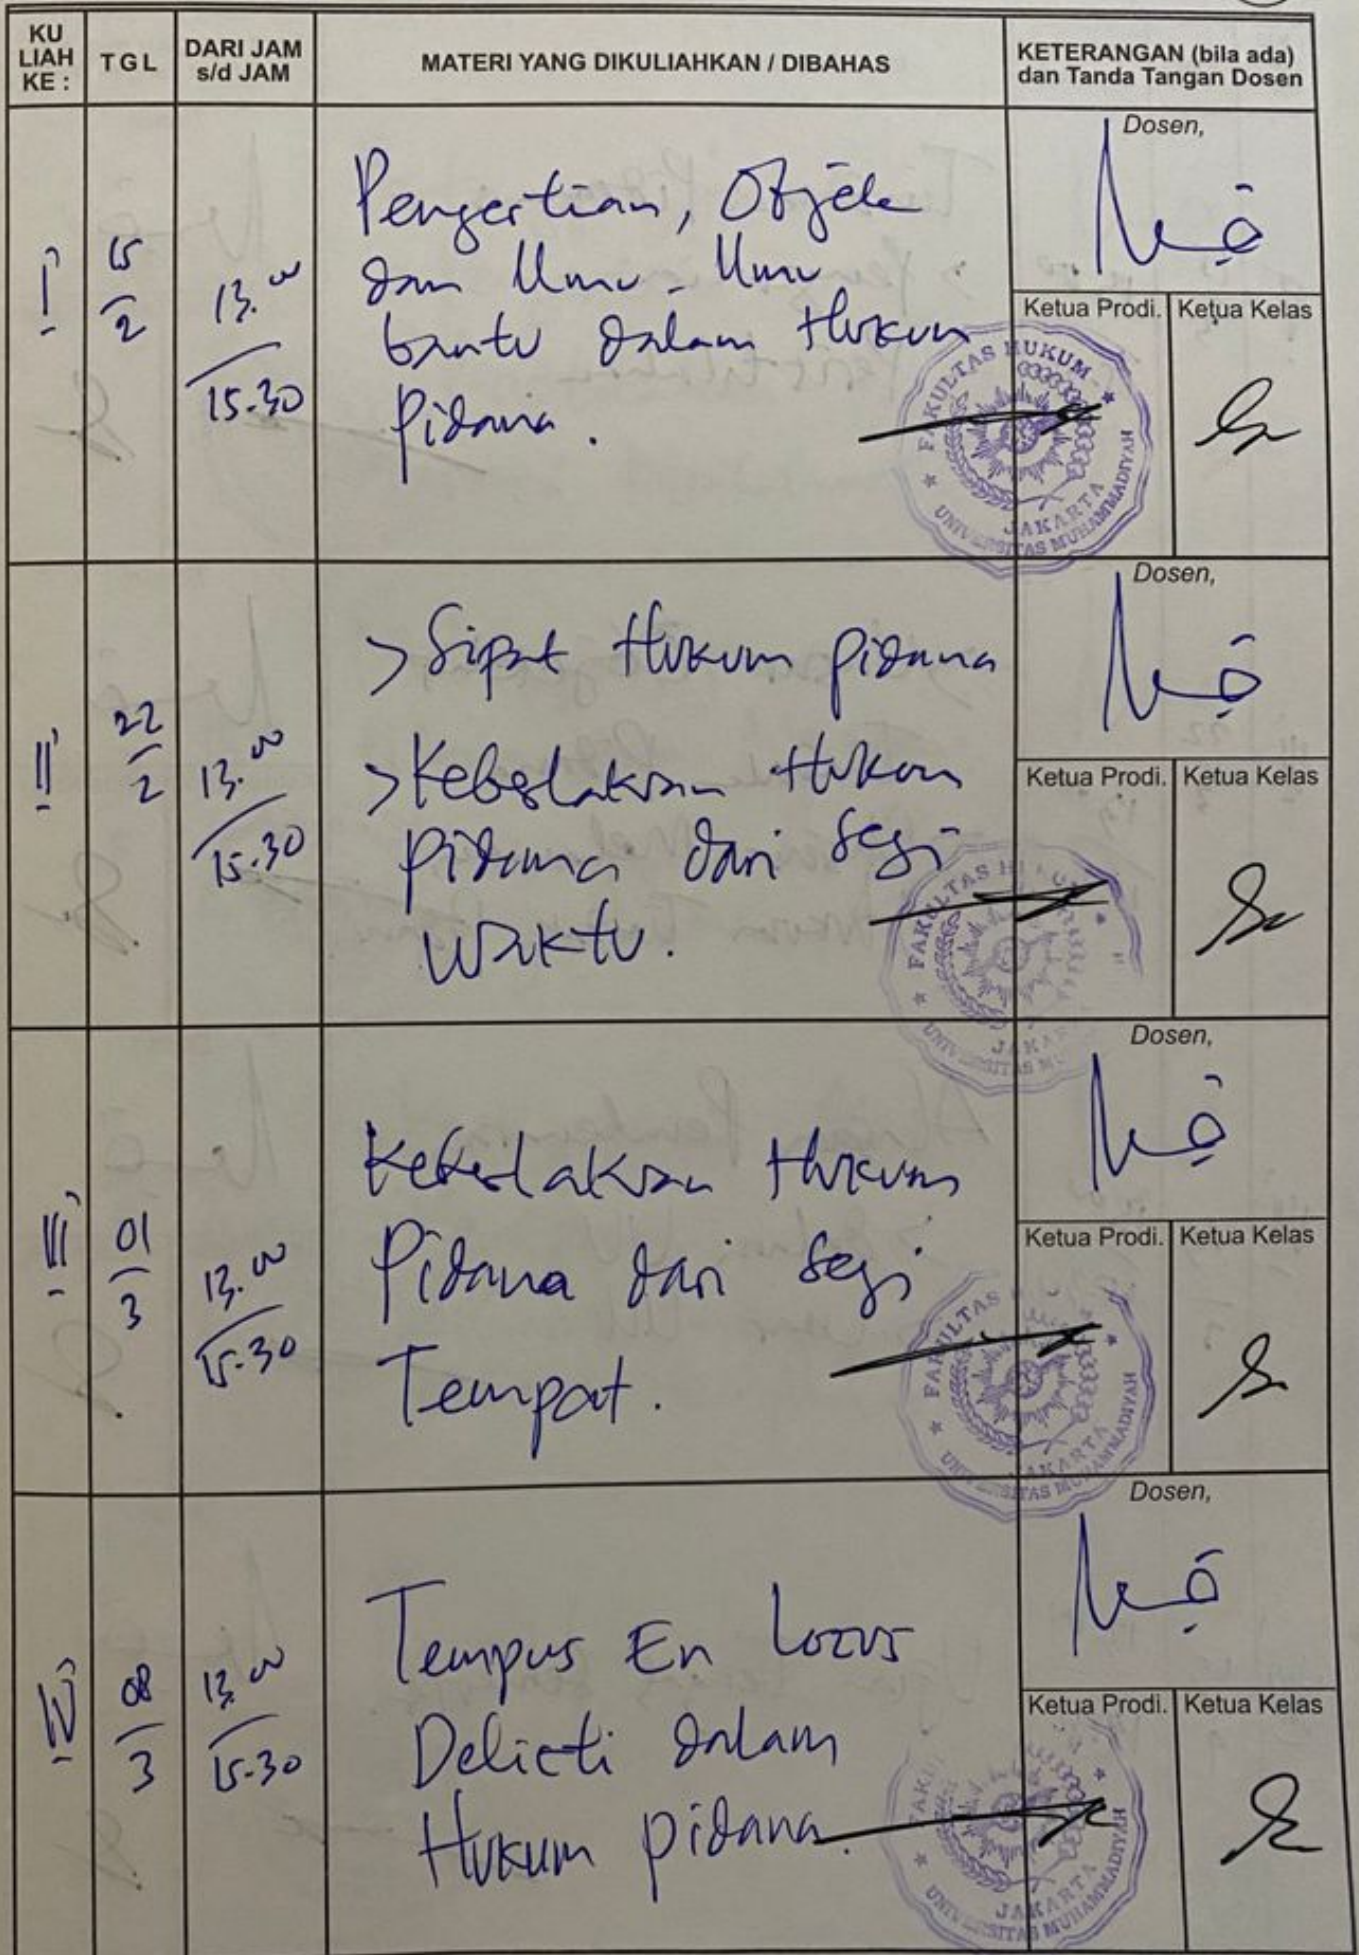 KU LIAH KE :
TGL
DARI JAM s/d JAM
MATERI YANG DIKULIAHKAN / DIBAHAS
KETERANGAN (bila ada) dan Tanda Tangan Dosen
I
15
2
13.00
15.30
Pengertian, Objek
dan Ilmu-Ilmu
bantu dalam Hukum
Pidana.
Dosen,
Ketua Prodi.
Ketua Kelas
FAKULTAS HUKUM
UNIVERSITAS MUHAMMADIYAH
JAKARTA
II
22
2
13.00
15.30
> Sipat Hukum pidana
> Keberlakuan Hukum
pidana dari segi
Waktu.
Dosen,
Ketua Prodi.
Ketua Kelas
FAKULTAS
III
01
3
13.00
15.30
Keberlakuan Hukum
Pidana dari segi
Tempat.
Dosen,
Ketua Prodi.
Ketua Kelas
FAKULTAS
UNIVERSITAS MUHAMMADIYAH
JAKARTA
IV
08
3
13.00
15.30
Tempus En Locus
Delicti dalam
Hukum pidana.
Dosen,
Ketua Prodi.
Ketua Kelas
UNIVERSITAS MUHAMMADIYAH
JAKARTA